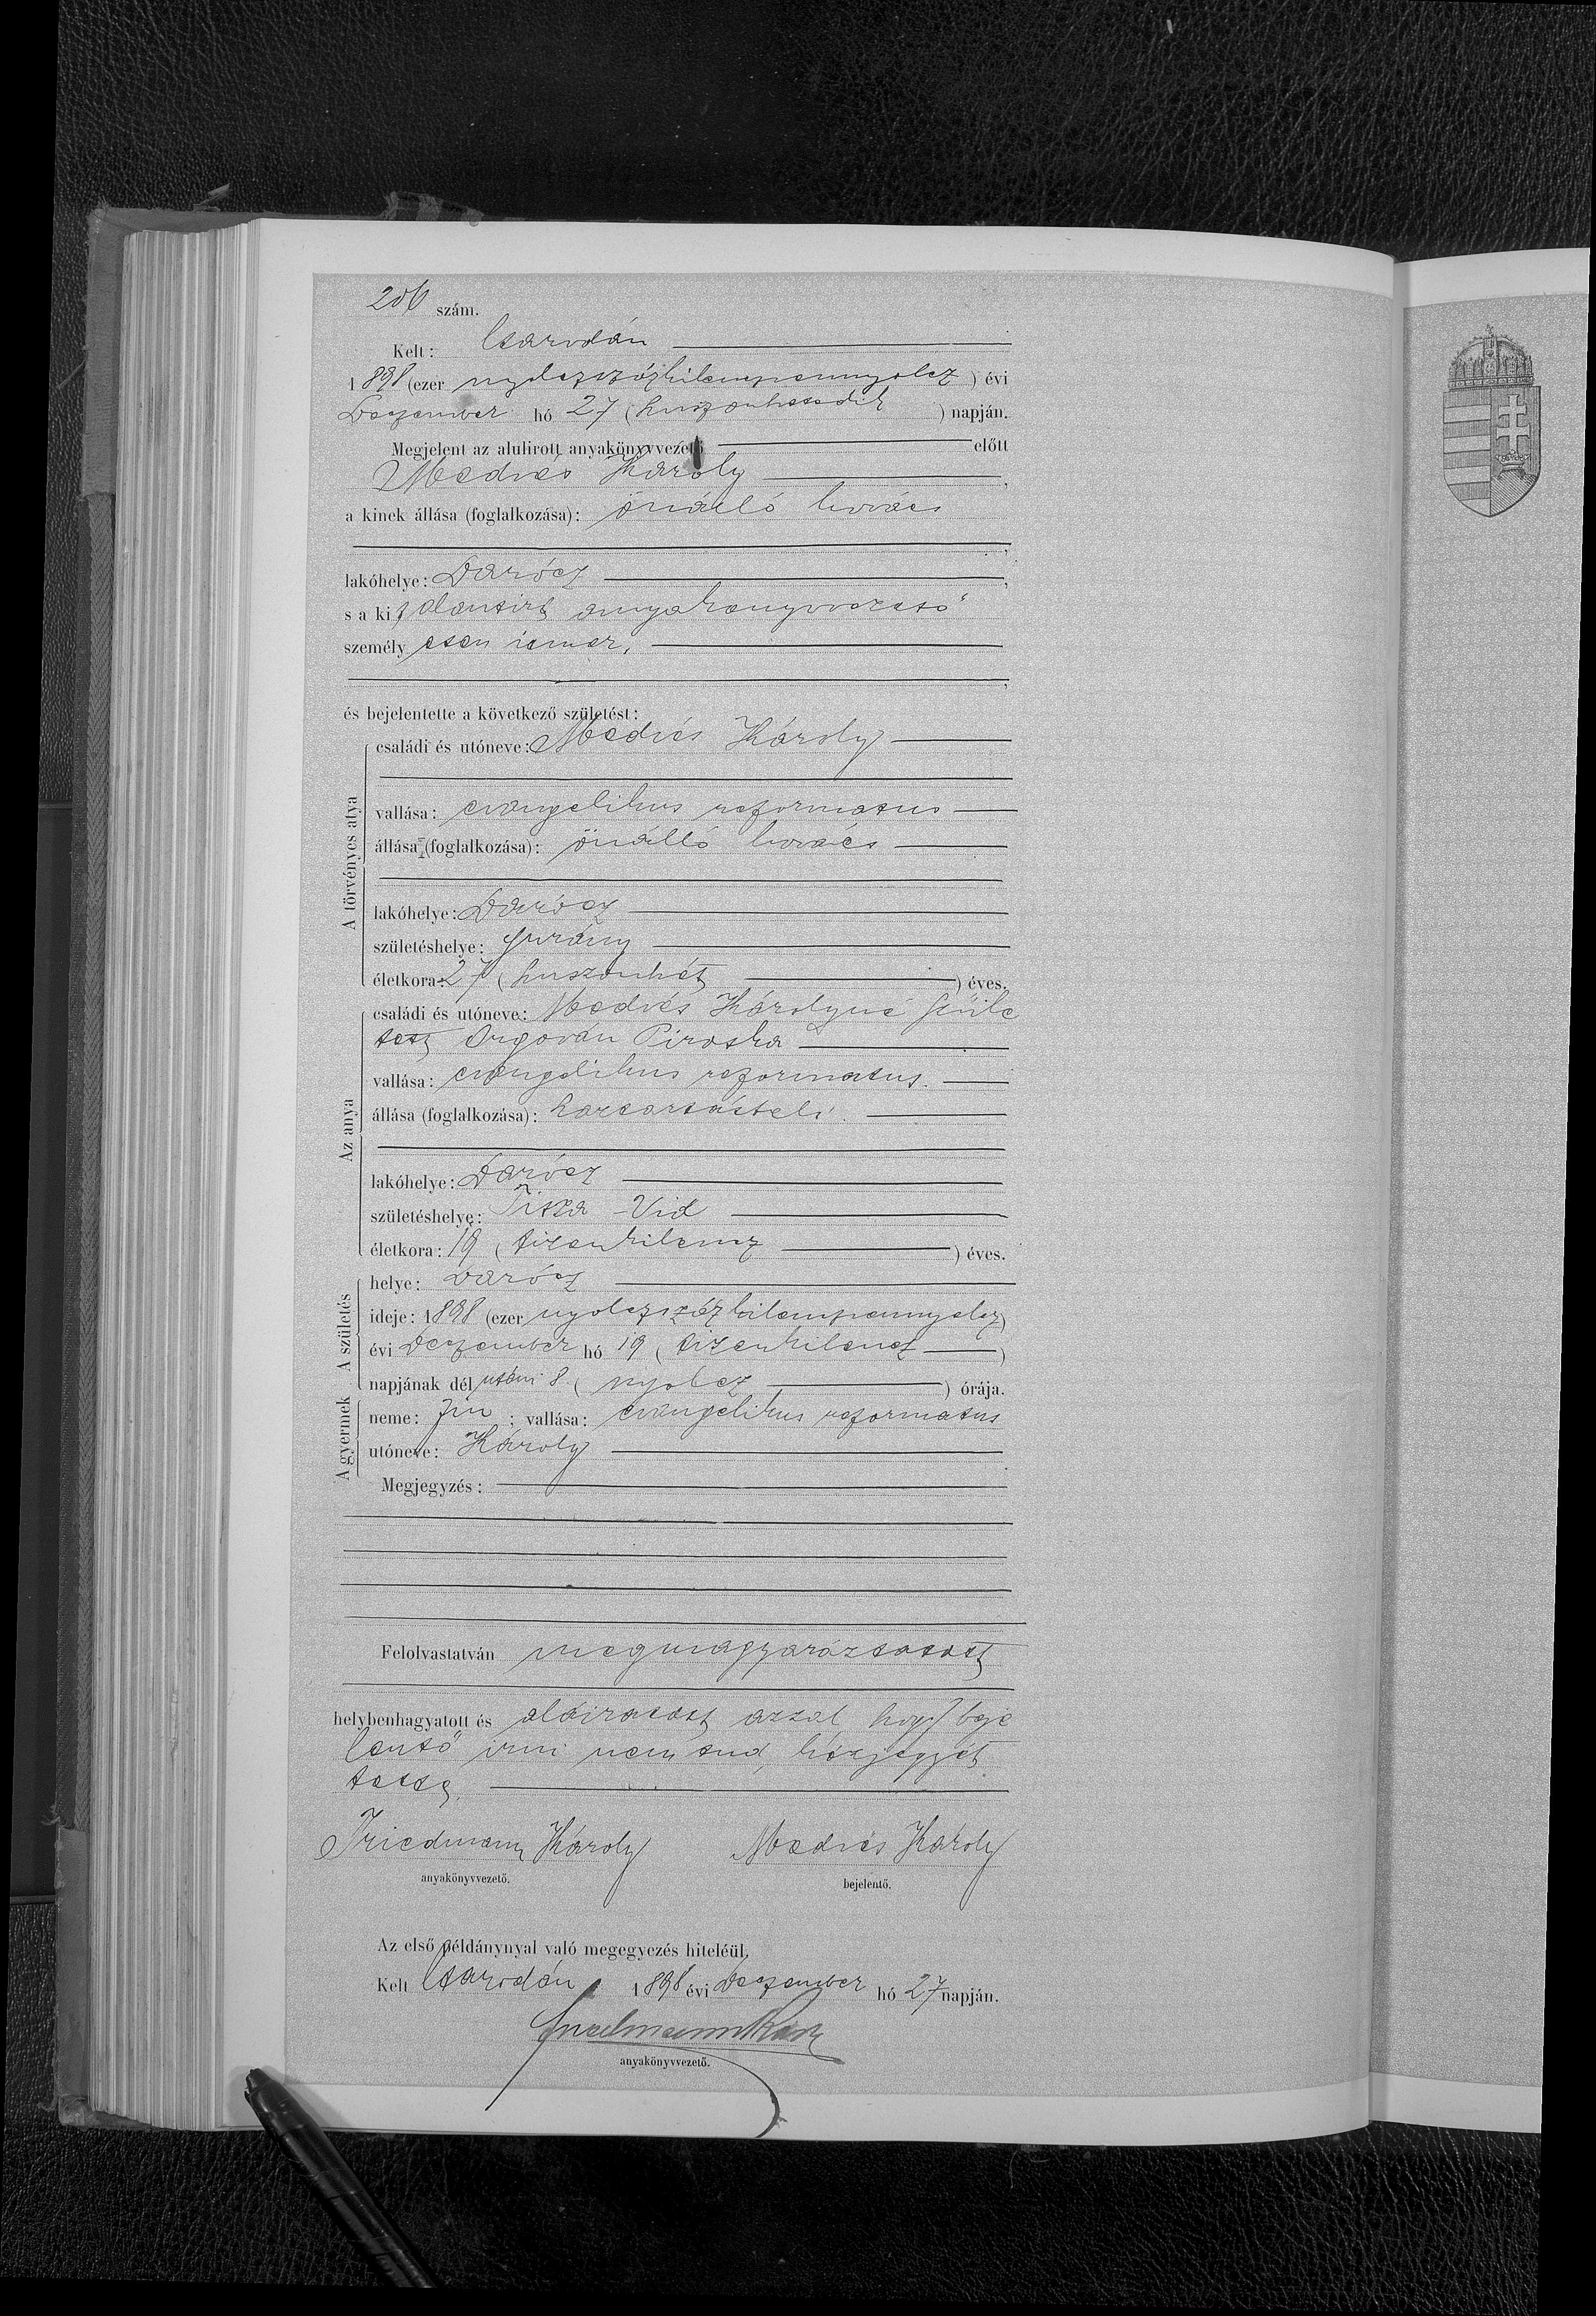 206 szám.
Kelt: Csarodán
1898 (ezer nyolczszázkilenczvennyolcz) évi
Deczember hó 27 (huszonhetedik) napján.
Megjelent az alulirott anyakönyvvezető előtt
Medvés Károly,
a kinek állása (foglalkozása): önálló kovács
lakóhelye: Darócz,
s a kit alantirt anyakönyvvezető
személyesen ismer,
és bejelentette a következő születést:
A törvényes atya
családi és utóneve: Medvés Károly
vallása: evangelikus reformatus
állása (foglalkozása): önálló kovács
lakóhelye: Darócz
születéshelye: Surány
életkora: 27 (huszonhét) éves.
Az anya
családi és utóneve: Medvés Károlyné szüle
tett Orgován Piroska
vallása: evangelikus reformatus.
állása (foglalkozása): háztartásbeli
lakóhelye: Darócz
születéshelye: Tisza-Vid
életkora: 19 (tizenkilencz) éves.
A születés
helye: Darócz
ideje: 1898 (ezer nyolczszázkilenczvennyolcz)
évi Deczember hó 19 (tizenkilencz)
napjának dél utáni 8 (nyolcz) órája.
A gyermek
neme: fiu; vallása: evangelikus reformatus
utóneve: Károly
Megjegyzés:
Felolvastatván megmagyaráztatott
helybenhagyatott és aláiratott azzal, hogy beje
lentő irni nem tud, kézjegyét
tette.
Friedmann Károly Medvés Károly
anyakönyvvezető. bejelentő.
Az első példánynyal való megegyezés hiteléül.
Kelt Csarodán 1898 évi Deczember hó 27 napján.
anyakönyvvezető.